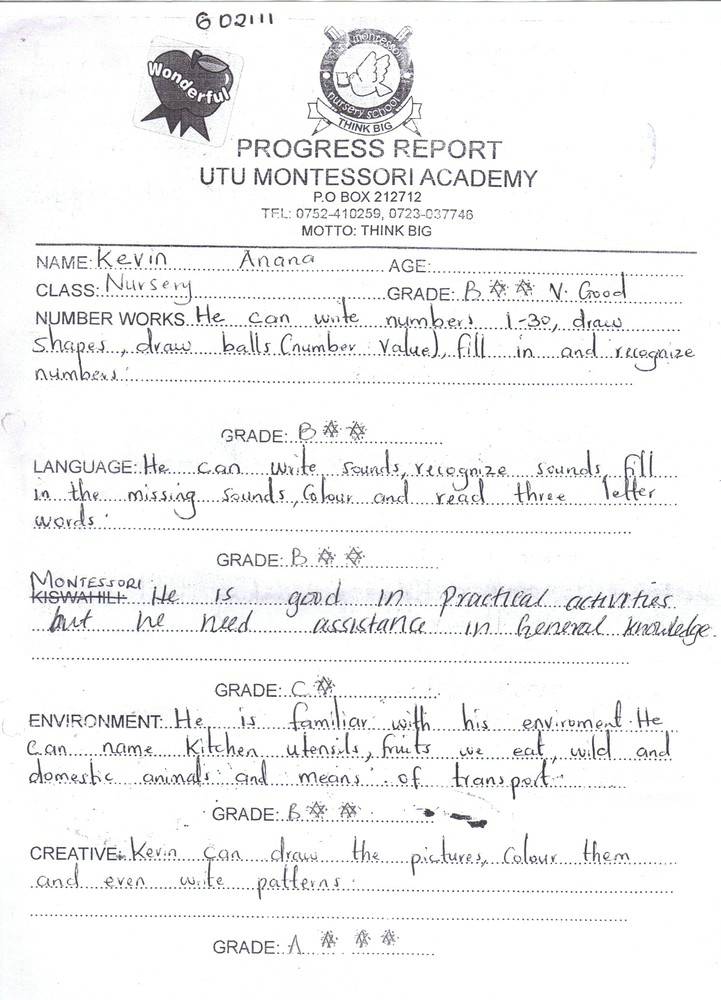 G02111
Wonderful
montessori
nursery school
THINK BIG
PROGRESS REPORT
UTU MONTESSORI ACADEMY
P.O BOX 212712
TEL: 0752-410259, 0723-037746
MOTTO: THINK BIG
NAME: Kevin Anana AGE:
CLASS: Nursery GRADE: B ☆☆ V. Good
NUMBER WORKS He can write numbers 1-30, draw
shapes, draw balls (number value), fill in and recognize
numbers.
GRADE: B ☆☆
LANGUAGE: He can write sounds, recognize sounds, fill
in the missing sounds, Colour and read three letter
words.
GRADE: B ☆☆
MONTESSORI
KISWAHILI: He is good in practical activities
but he need assistance in General knowledge.
GRADE: C ☆
ENVIRONMENT: He is familiar with his enviroment. He
Can name Kitchen utensils, fruits we eat, wild and
domestic animals and means of transport.
GRADE: B ☆☆
CREATIVE: Kevin can draw the pictures, Colour them
and even write patterns.
GRADE: A ☆☆☆